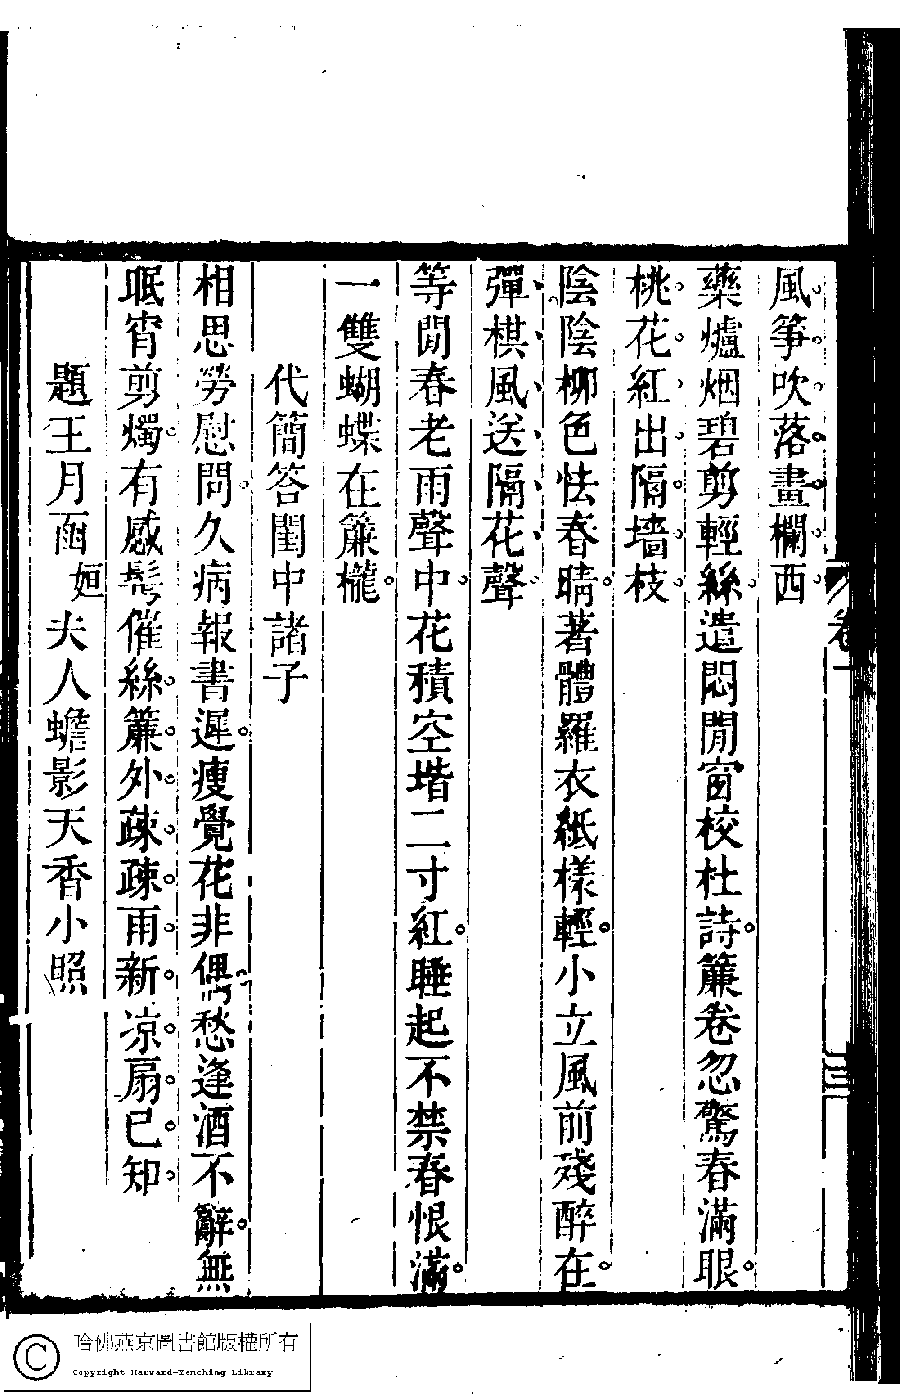 風箏吹落畫欄西
藥爐烟碧剪輕絲遣悶閒窗校杜詩簾卷忽驚春滿眼
桃花紅出隔墻枝
陰陰柳色怯春晴著體羅衣紙樣輕小立風前殘醉在
彈棋風送隔花聲
等閒春老雨聲中花積空堦二寸紅睡起不禁春恨滿
一雙蝴蝶在簾櫳
代簡答閨中諸子
相思勞慰問久病報書遲瘦覺花非偶愁逢酒不辭無
眠宵剪燭有感髩催絲簾外疎疎雨新涼扇已知
題王月函姮夫人蟾影天香小照
卷一
三
哈佛燕京圖書館版權所有
Copyright Harvard-Yenching Library